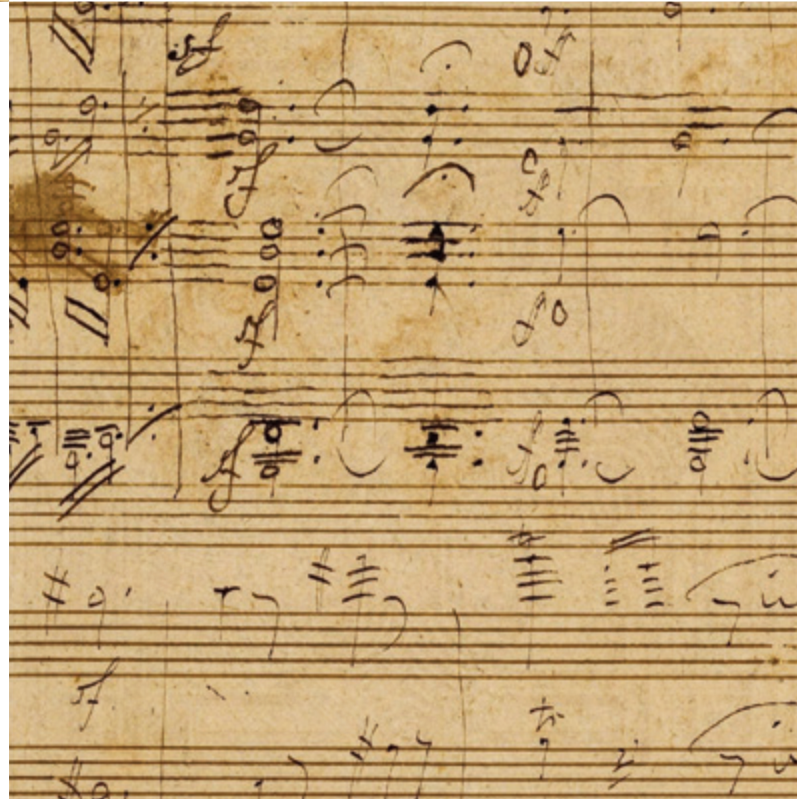 sf
sf
sf
sf
sf sf
sf